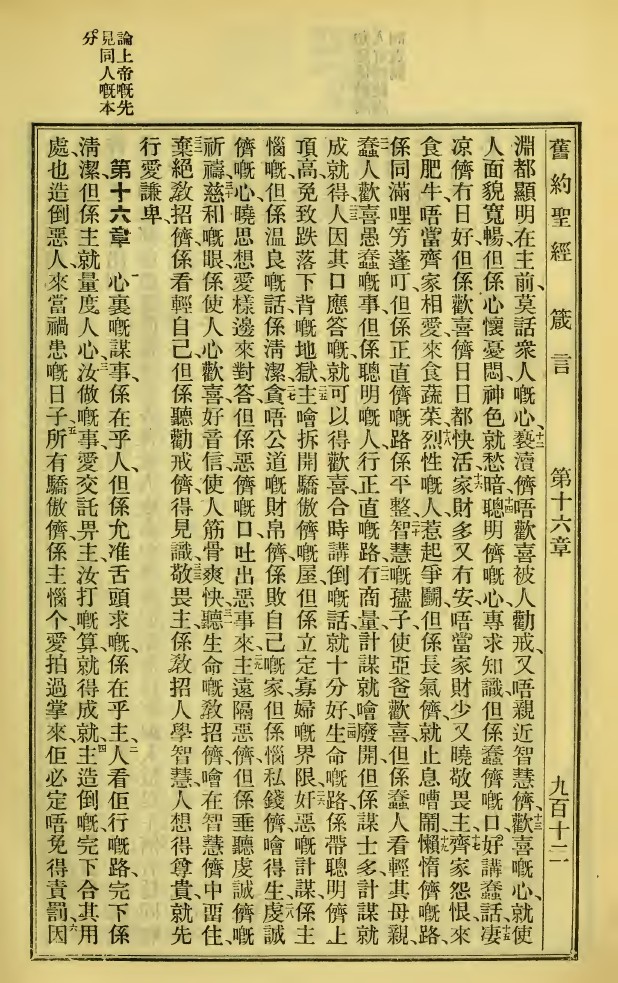 舊約聖經　箴言　第十六章　九百十二
淵都顯明在主前、莫話衆人嘅心、十二褻瀆儕唔歡喜被人勸戒、又唔親近智慧儕、十三歡喜嘅心、就使
人面貌寬暢、但係心懷憂悶、神色就愁暗、十四聰明儕嘅心專求知識、但係蠢儕嘅口、好講蠢話、十五凄
凉儕冇日好、但係歡喜儕日日都快活、十六家財多又冇安唔當家財少又曉敬畏主、十七齊家怨恨來
食肥牛、唔當齊家相愛來食蔬菜、十八烈性嘅人惹起爭鬭、但係長氣儕就止息嘈鬧、十九懶惰儕嘅路、
係同滿哩竻蓬叮、但係正直儕嘅路、係平整、二十智慧嘅孻子使亞爸歡喜、但係蠢人看輕其母親、
二一蠢人歡喜愚蠢嘅事、但係聰明嘅人行正直嘅路、二二冇商量、計謀就噲廢開、但係謀士多、計謀就
成就、二三得人因其口應答嘅、就可以得歡喜、合時講倒嘅話、就十分好、二四生命嘅路係帶聰明儕上
頂高、免致跌落下背嘅地獄、二五主噲拆開驕傲儕嘅屋、但係立定寡婦嘅界限、二六奸惡嘅計謀、係主
惱嘅、但係溫良嘅話、係清潔、二七貪唔公道嘅財帛儕、係敗自己嘅家、但係惱私錢儕、噲得生、二八虔誠
儕嘅心、曉思想愛樣邊來對答、但係惡儕嘅口、吐出惡事來、二九主遠隔惡儕、但係垂聽虔誠儕嘅
祈禱、三十慈和嘅眼、係使人心歡喜、好音信使人筋骨爽快、三一聽生命嘅敎招儕、噲在智慧儕中酉住、
三二棄絕敎招儕、係看輕自己、但係聽勸戒儕得見識、三三敬畏主、係敎招人學智慧、人想得尊貴、就先
行愛謙卑、
第十六章　一心裏嘅謀事係在乎人、但係允准舌頭求嘅、係在乎主、二人看佢行嘅路、完下係
清潔、但係主就量度人心、三汝做嘅事、愛交託畀主、汝打嘅算就得成就、四主造倒嘅、完下合其用
處、也造倒惡人、來當禍患嘅日子、五所有驕傲儕、係主惱个、愛拍過掌來、佢必定唔免得責罰、六因
論上帝嘅先
見同人嘅本
分